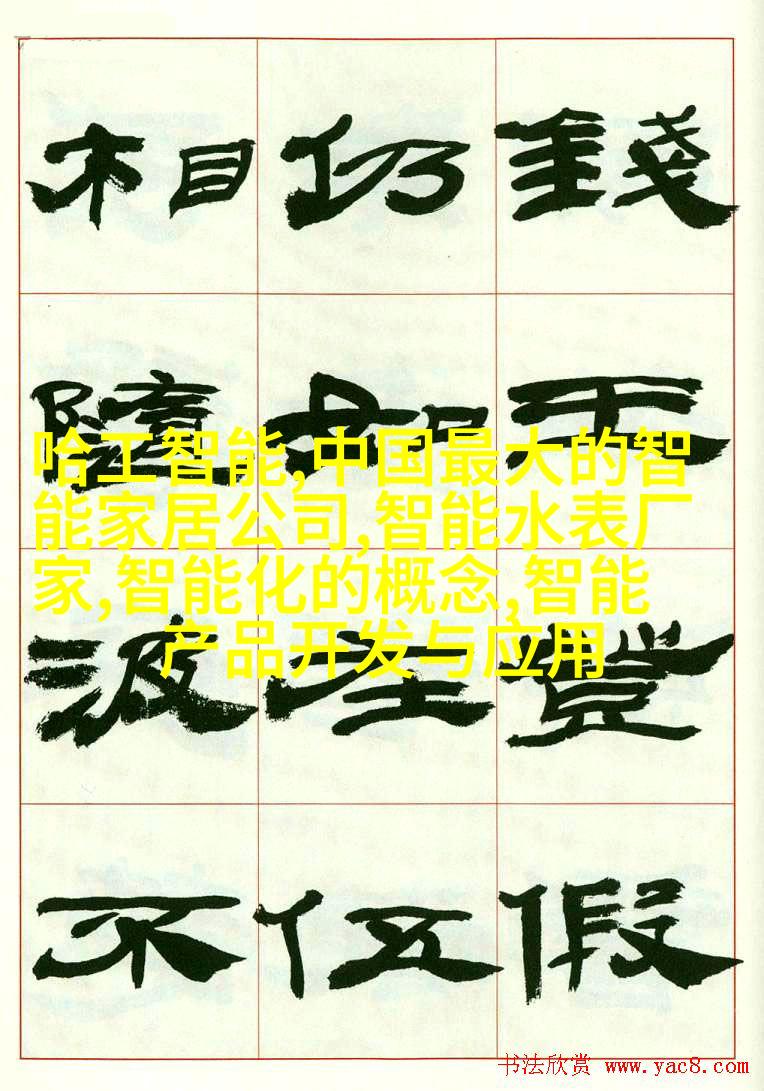 相仍錢
如
哈工智能,中国最大的智
能家居公司,智能水表厂
家,智能化的概念,智能
产品开发与应用
波 登
不伍假
书法欣赏 www.yac8.com